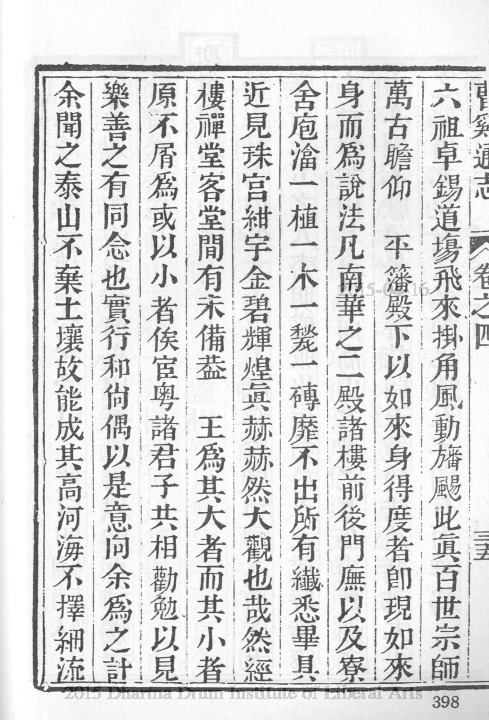 曹溪通志 卷之四 三五
六祖卓錫道塲飛來掛角風動旛颺此眞百世宗師
萬古瞻仰 平籓殿下以如來身得度者卽現如來
身而爲說法凡南華之二殿諸樓前後門廡以及寮
舍庖湢一植一木一甃一磚靡不出所有纖悉畢具
近見珠宮紺宇金碧輝煌眞赫赫然大觀也哉然經
樓禪堂客堂閒有未備葢 王爲其大者而其小者
原不屑爲或以小者俟宦粵諸君子共相勸勉以見
樂善之有同念也實行和尙偶以是意向余爲之計
余聞之泰山不棄土壤故能成其高河海不擇細流
2015 Dharma Drum Institute of Liberal Arts
398